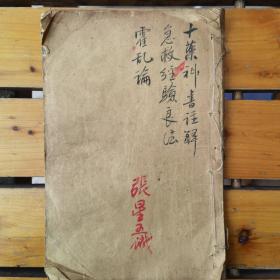 十药科書注解
急救經驗良法
霍乱論
張星五識